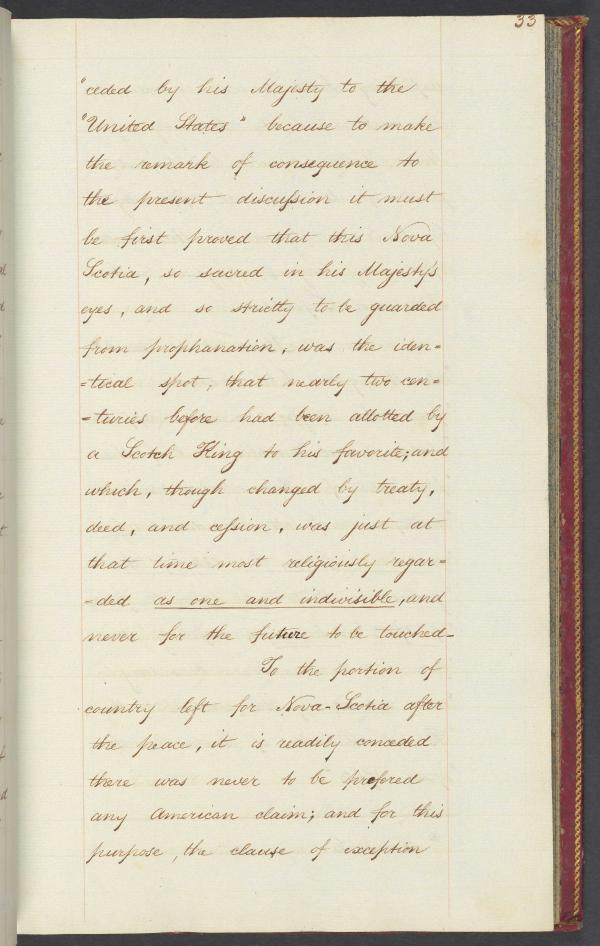 33
"ceded by his Majesty to the
"United States" because to make
the remark of consequence to
the present discussion it must
be first proved that this Nova
Scotia, so sacred in his Majesty's
eyes, and so strictly to be guarded
from prophanation, was the iden=
=tical spot, that nearly two cen=
=turies before had been allotted by
a Scotch King to his favorite; and
which, though changed by treaty,
deed, and cession, was just at
that time most religiously regar=
=ded as one and indivisible, and
never for the future to be touched_
To the portion of
country left for Nova-Scotia after
the peace, it is readily conceded
there was never to be prefered
any American claim; and for this
purpose, the clause of exception